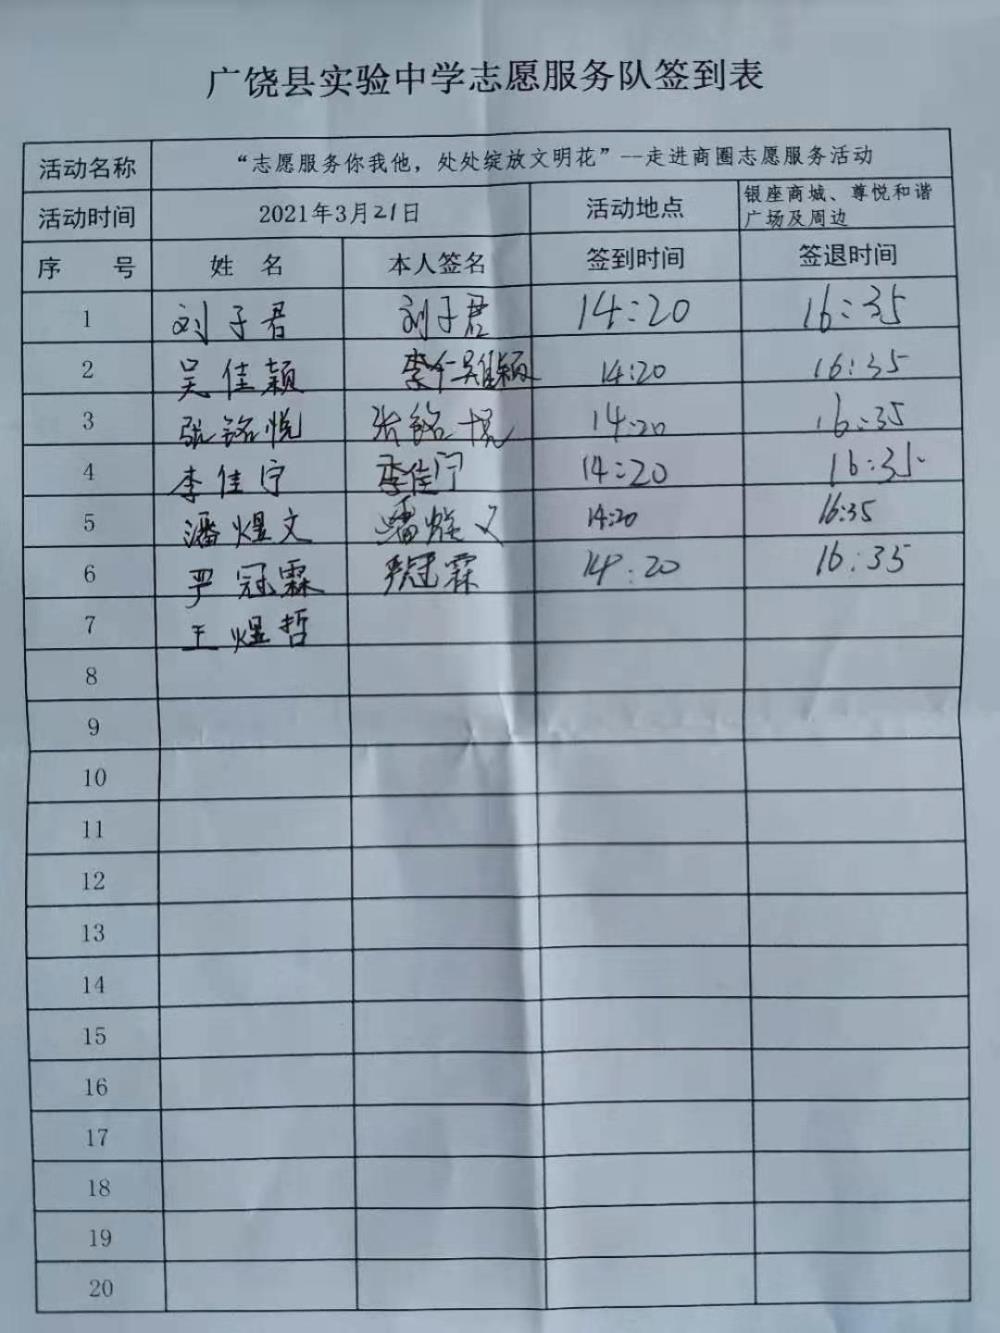 广饶县实验中学志愿服务队签到表
活动名称 “志愿服务你我他，处处绽放文明花”--走进商圈志愿服务活动
活动时间 2021年3月21日 活动地点 银座商城、尊悦和谐
广场及周边
序 号 姓 名 本人签名 签到时间 签退时间
1 刘子君 刘子君 14:20 16:35
2 吴佳颖 14:20 16:35
3 张铭悦 张铭悦 14:20 16:35
4 李佳宁 李佳宁 14:20 16:35
5 潘煜文 14:20 16:35
6 严冠霖 严冠霖 14:20 16:35
7 王煜哲
8
9
10
11
12
13
14
15
16
17
18
19
20